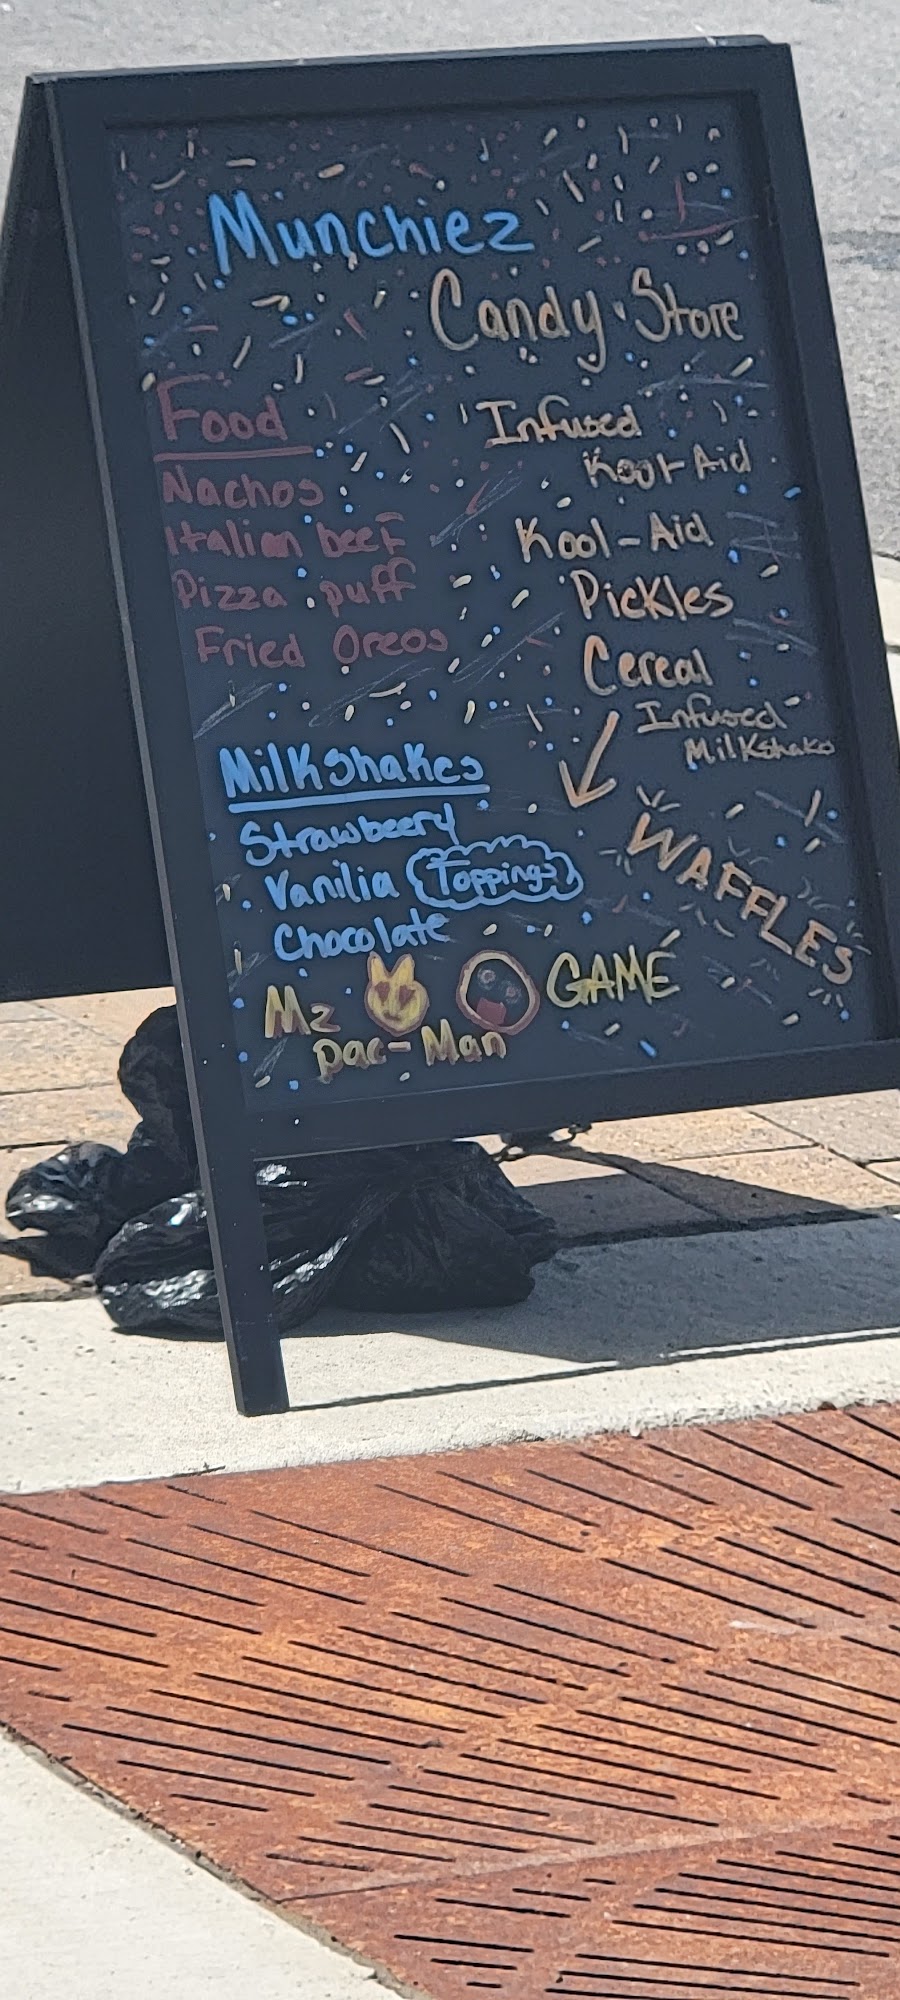 Munchiez
Candy Store
Food
Nachos
Italian beef
Pizza puff
Fried Oreos
Infused
Kool Aid
Kool-Aid
Pickles
Cereal
Infused
Milkshake
WAFFLES
Milkshakes
Strawbeery
Vanilia Toppings
Chocolate
Mz GAME
pac-Man